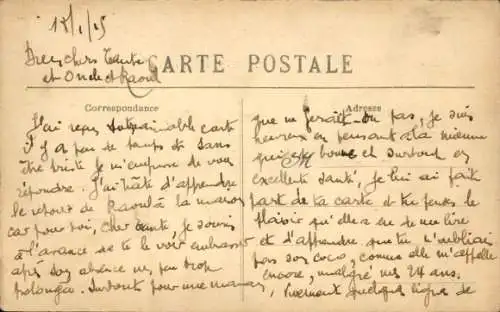 18/1/15
Bien chers Tante
et Oncle et Raoul
CARTE POSTALE
Correspondance
J'ai reçu votre aimable carte
il y a peu de temps et sans
être triste je m'empresse de vous
répondre. J'ai hâte d'apprendre
le retour de Raoul à la maison
car pour toi, cher tante, je souris
à l'avance de te le voir embrasser
après son absence un peu trop
prolongée. Surtout pour une maman,
Adresse
que ne ferait-on pas, je suis
heureux en pensant à la mienne
qui est bonne et surtout en
excellente santé, je lui ai fait
part de ta carte et tu penses le
plaisir qu'elle a eu de me lire
et d'apprendre que tu n'oubliais
pas son coco, comme elle m'appelle
encore, malgré mes 24 ans.
Vivement quelques lignes de